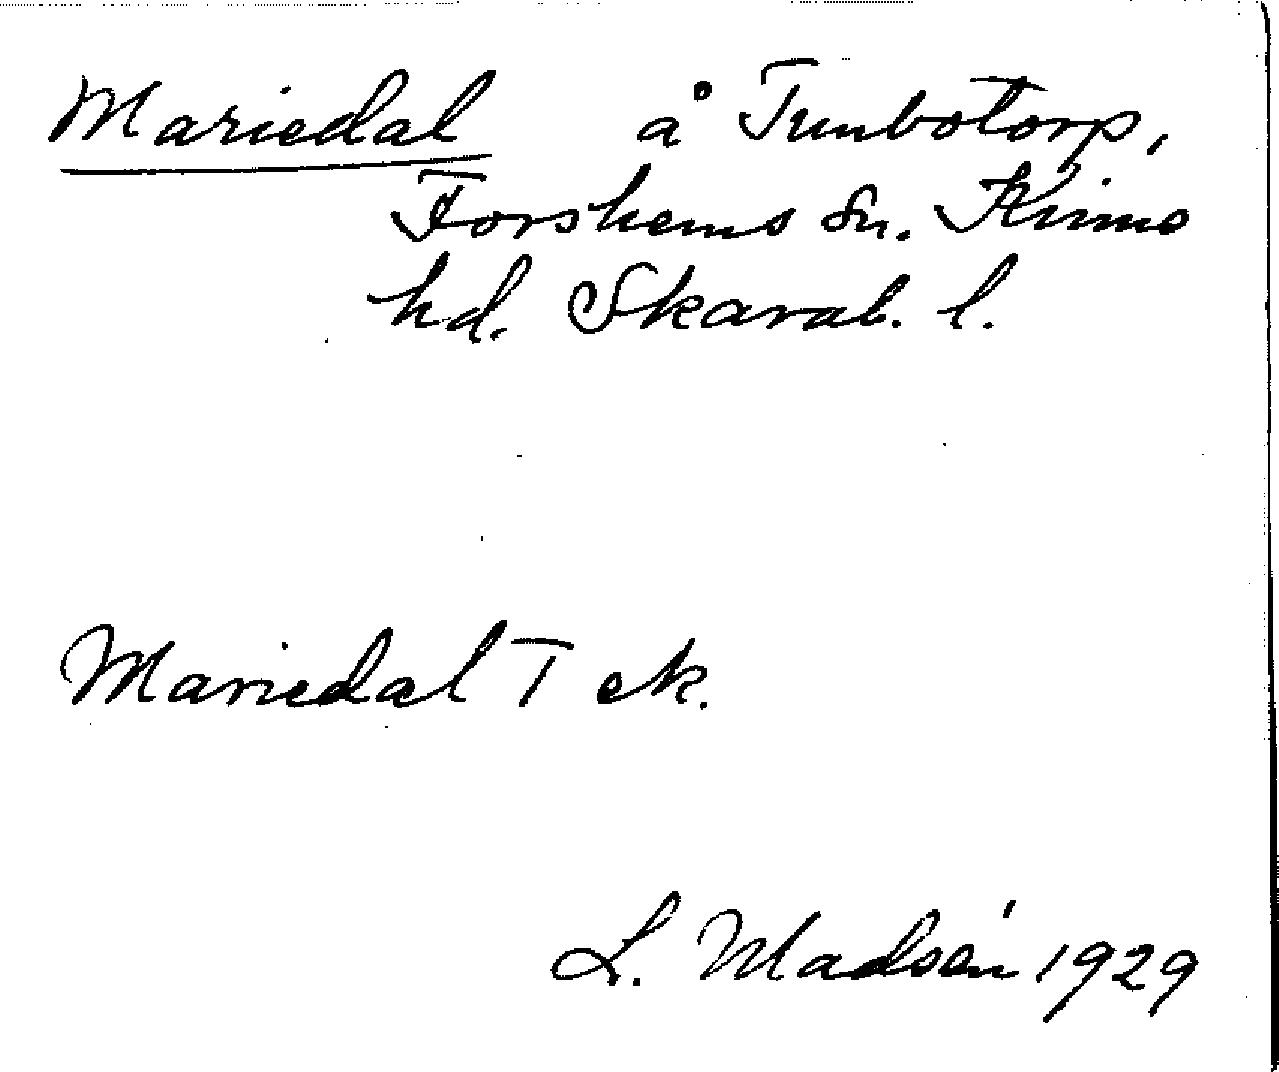 Mariedal å Tumbotorp,
Forshems sn. Kinne
hd. Skarab. l.
Mariedal T ek.
L. Madsén 1929